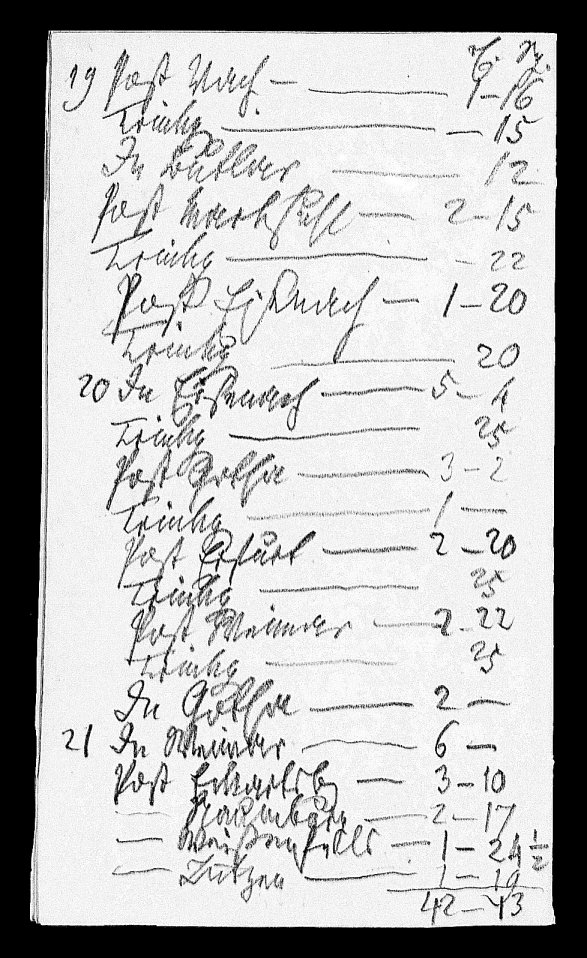 19 Post Vach — 1–16
Trinkg — 15
In Buttlar — 12
Post Marksuhl — 2–15
Trinkg — 22
Post Eisenach — 1–20
Trinkg — 20
20 In Eisenach — 5–4
Trinkg — 25
Post Gotha — 3–2
Trinkg — 1 —
Post Erfurt — 2–20
Trinkg — 25
Post Weimar — 2–22
Trinkg — 25
In Gotha — 2 —
21 In Weimar — 6 —
Post Eckartsbg — 3–10
— Naumburg — 2–17
— Weißenfells — 1–24 ½
— Lützen — 1–19
42–43